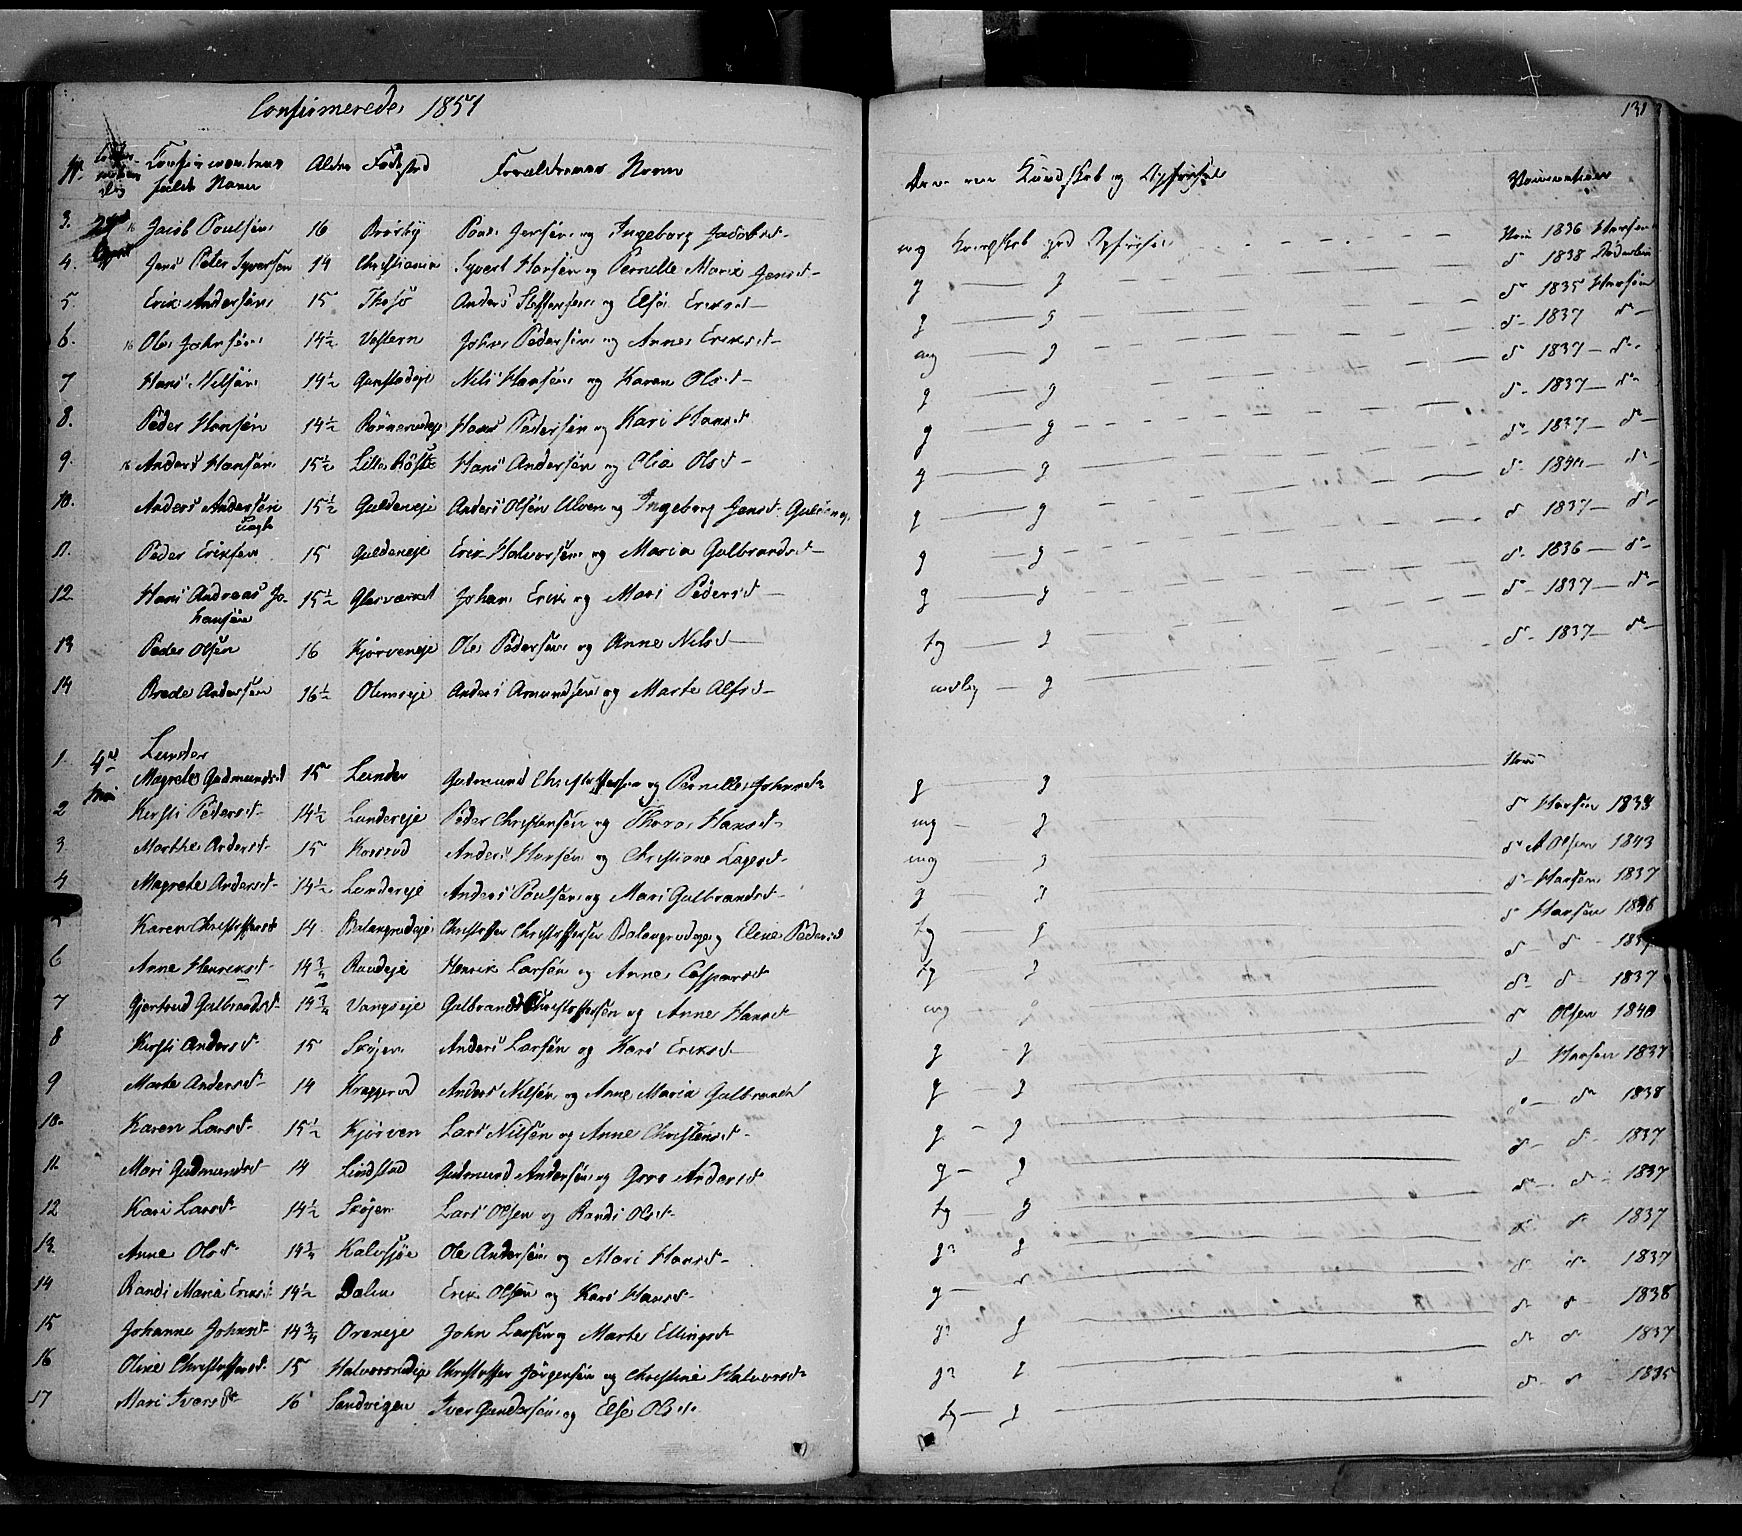 Confirmerede 1851
131
N. Confirmations dag Confirmanternes fulde Navn Alder Fødested Forældrenes Navn Dom om Kundskab og Opførsel Vaccination
3. 27de April Jacob Poulsen 16 Brørby Poul Jensen og Ingeborg Jacobsd- mg Kundskab god Opførsel 1836 Hansen
4. Jens Peter Syversen 14 Christiania Syvert Hansen og Pernille Marie Jensd- g g d- 1838
5. Erik Andersen 15 Anders Steffensen og Else Eriksd- g g d- 1835 Hansen
6. Ole Johnsen 14½ Vestern John Pedersen og Anne Eriksd- mg g d- 1837 d-
7 Hans Nilsen 14½ Nils Hansen og Karen Olsd- g g d- 1837 - d-
8. Peder Hansen 14½ Hans Pedersen og Kari Hansd g g d- 1837 - d-
9. Anders Hansen 15½ Lille Røste Hans Andersen og Olia Olsd- g g d- 1837 - d-
10. Anders Andersen 15½ Guldeneje Anders Olsen Ulven og Ingeborg Jensd- g g d- 1837 - d-
11. Peder Eriksen 15 Guldeneje Erik Halvorsen og Maria Gulbrandsd- g g d- 1836 - d-
12. Hans Andreas Johansen 15½ Glasværket Johan Erik og Mari Pedersd- g g d- 1837 - d-
13 Peder Olsen 16 Kjørveneje Ole Pedersen og Anne Nilsd- tg g d- 1837 - d-
14 Brede Andersen 16½ Olimseje Anders Amundsen og Marte Alfsd- g
Lunder
1. 4de Mai Magrete Gudmundsd 15 Lunder Gudmund Christoffersen og Pernille Johnsd- g g
2 Kirsti Pedersd- 14½ Lundereje Peder Christensen og Thora Hansd- mg g d- Hansen 1838
3. Marthe Andersd- 15 Anders Hansen og Christiane Lagesd- mg g d- A Olsen 1843
4 Magrete Andersd- 14½ Lundereje Anders Poulsen og Mari Gulbrandsd- g g d- Hansen 1837
5 Karen Christoffersd 14 Christoffer Christoffersen og Eline Pedersd tg g d Hansen
6 Anne Henriksd- 14¾ Rudeje Henrik Larsen og Anne Caspersd tg g d- d-
7 Gjertrud Gulbrandsd- 14¾ Vangseje Gulbrand Christoffersen og Anne Hansd- mg g d- d- 1837
8 Kirsti Andersd- 15 Skøien Anders Larsen og Kari Eriksd g g d Olsen 1840
9 Marte Andersd- 14 Kraggerud Anders Nilsen og Anne Maria Gulbrandsd g g d- Hansen 1837
10. Karen Larsd- 15½ Kjørven Lars Nilsen og Anne Christensd- g g d- d- 1838
11. Mari Gudmundsd- 14 Lindstad Gudmund Andersen og Goro Andersd g g d- d- 1837
12 Kari Larsd- 14½ Skøjen Lars Olsen og Randi Olsd- tg g d- d- 1837
13. Anne Olsd- 14¾ Kalvsjøe Ole Andersen og Mari Hansd- g g d- d- 1837
14 Randi Maria Eriksd- 14½ Dalen Erik Olsen og Kari Hansd- g d- d- 1837
15 Johanne Johnsd- 14¾ Oreneje John Larsen og Marte Ellingsd- g g d- d- 1838
16 Oline Christoffersd- 15 Halvorsrudeje Christoffer Jørgensen og Christine Halvorsd- g d- d- 1837
17 Mari Iversd- 16 Sandvigen Iver Gundersen og Else Olsd- tg g d- d- 1835